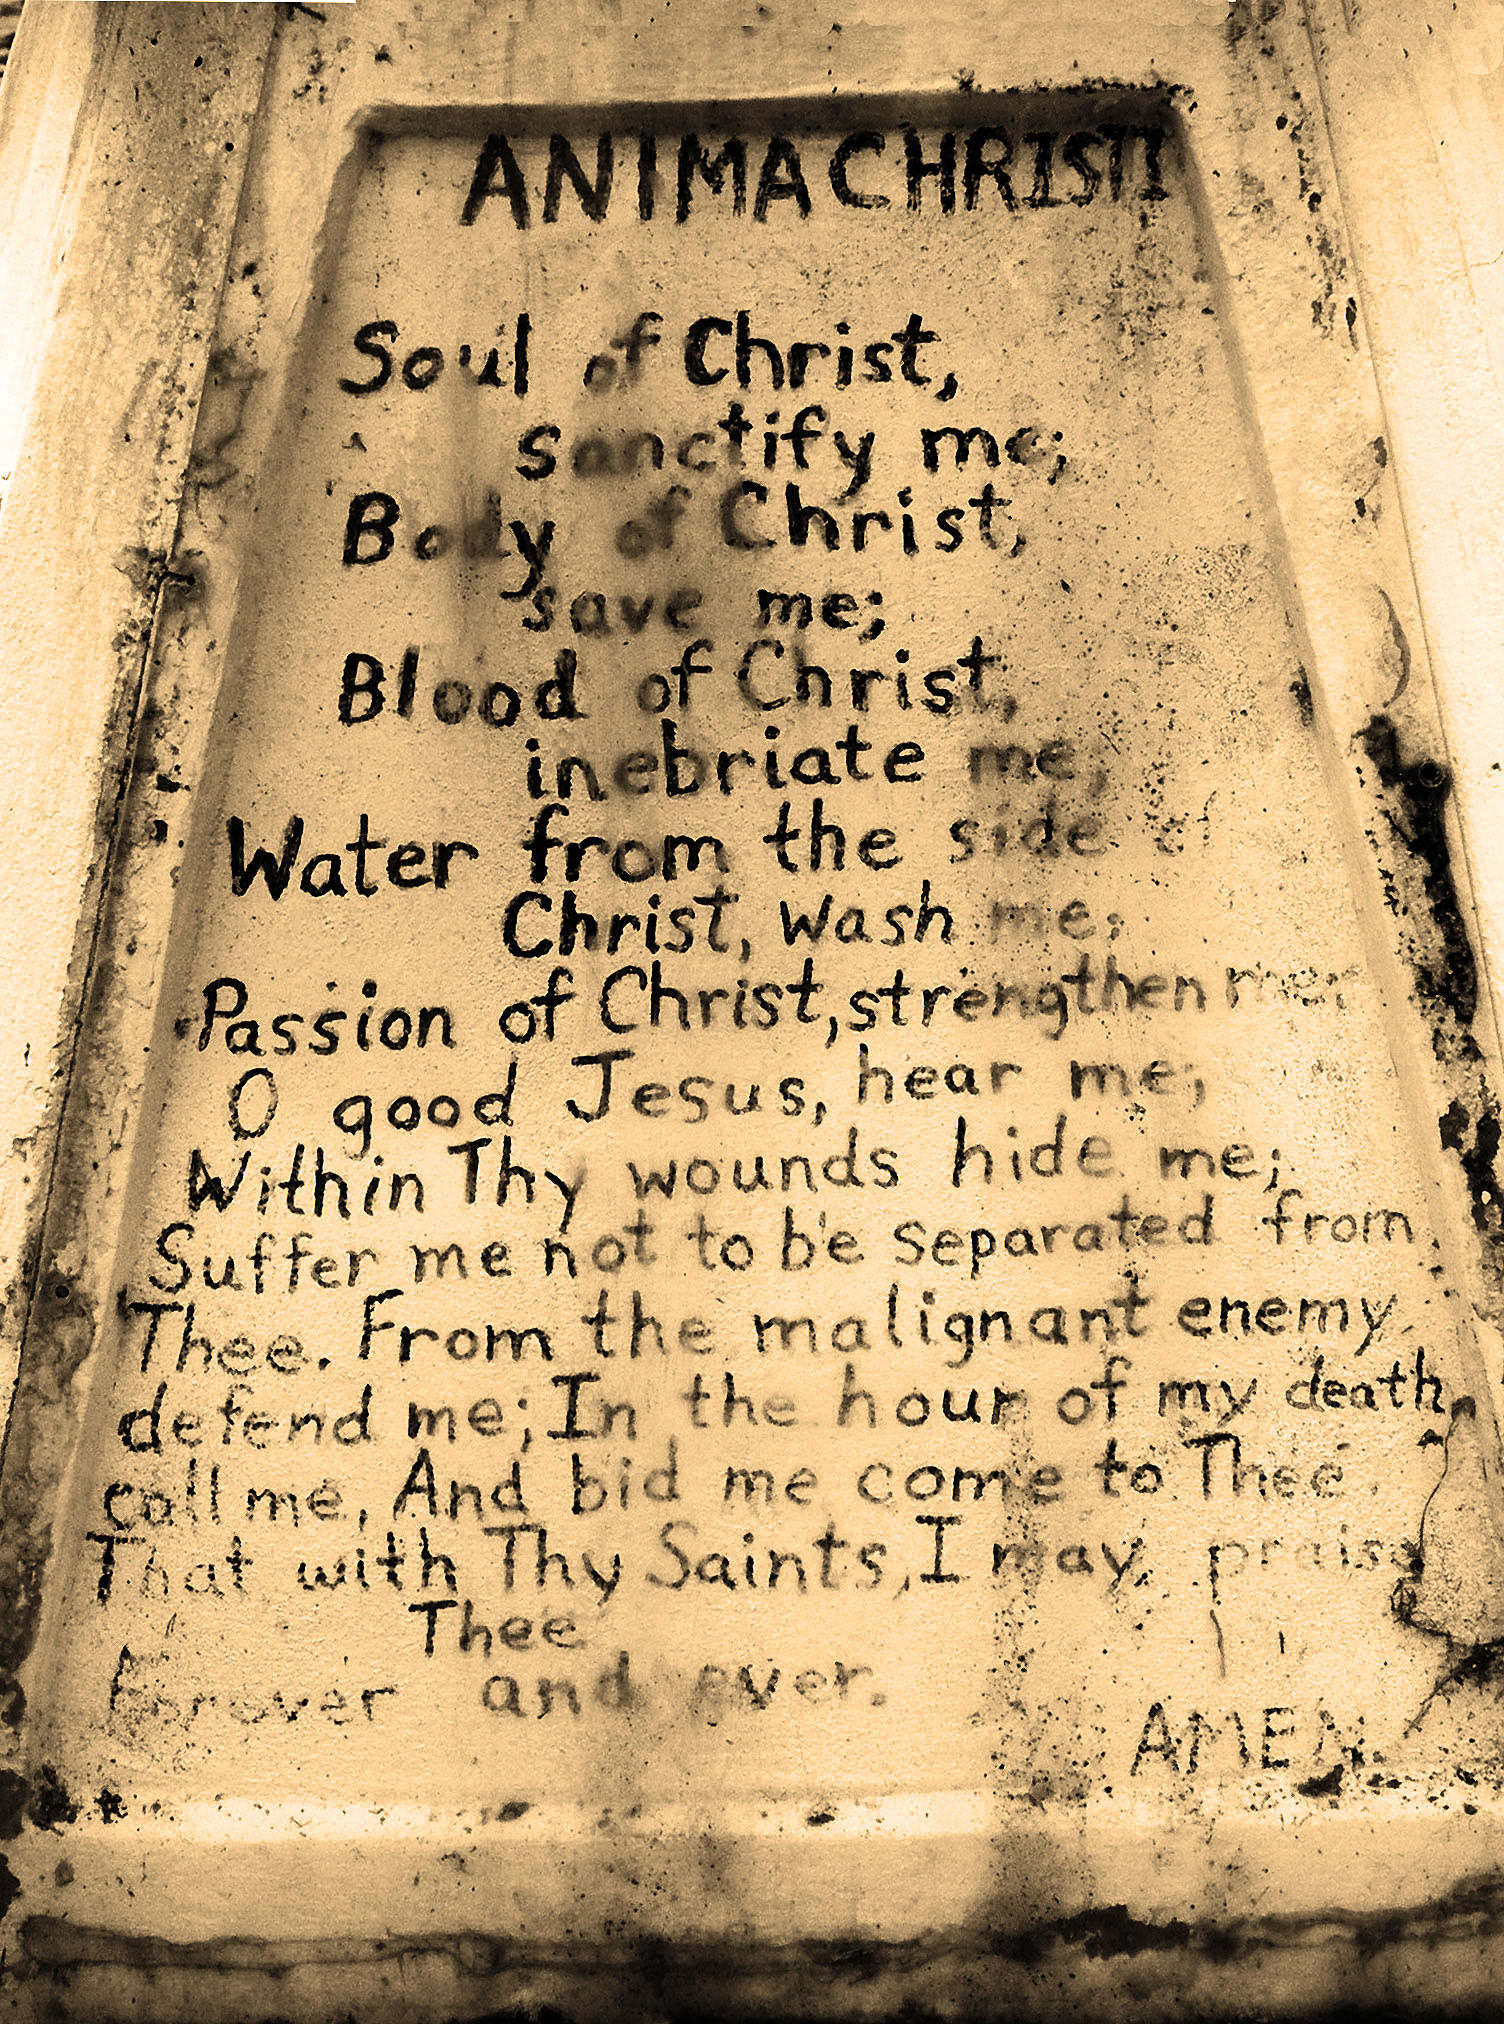 ANIMA CHRISTI
Soul of Christ,
sanctify me;
Body of Christ,
save me;
Blood of Christ,
inebriate me,
Water from the side of
Christ, wash me;
Passion of Christ, strengthen me;
O good Jesus, hear me;
Within Thy wounds hide me;
Suffer me not to be separated from
Thee. From the malignant enemy
defend me; In the hour of my death,
call me, And bid me come to Thee.
That with Thy Saints, I may praise
Thee
Forever and ever.
AMEN.